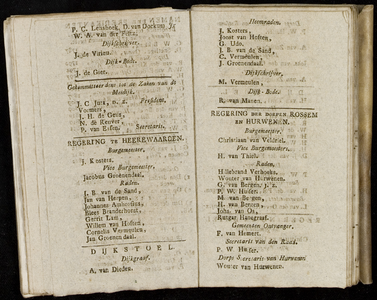 P. C.
W. A. van der
Dijkschrijver.
J. de Virieu.
Dijk-Bode.
J. de Goer.
Gekommitteerdens tot de Zaken van de
J. C. Juta, President.
J. H. de Geus,
N. de Reever,
P. van Essen. Secretaris.
REGERING te HEEREWAARDEN.
Burgemeester,
J. Kosters.
Vice Burgemeester,
Jacobus Groenendaal.
Raden.
J. B. van de Sand,
Jan van Herpen,
Johannes
Gerrit Lam,
Willem van
Cornelis Vermeulen,
Jan Groenendaal.
DIJKSTOEL.
Dijkgraaf.
A. van Dieden.
Heemraden.
J. Kosters,
Joost van
G. Udo,
J. B. van de Sand,
C. Vermeulen,
J. Groenendaal.
Dijkschrijver,
M. Vermeulen,
Dijk-Bode.
R. van Manen.
REGERING der dorpen ROSSEM
en HURWENEN.
Burgemeester,
Christiaan van Velzen.
Vice Burgemeester,
H. van Thiel.
Raden.
Hillebrand Verhoeks,
Wouter van Hurwenen,
G. van Beuzen, j. z.
P. W. Huiser,
M. van Bergen,
H. van Bergen,
Joha. van Os,
Rutger
Gemeenten Ontvanger.
F. van Hemert.
Secretaris van den Raad.
P. W. Huiser.
Dorps Secretaris van Hurwenen
Wouter van Hurwenen.